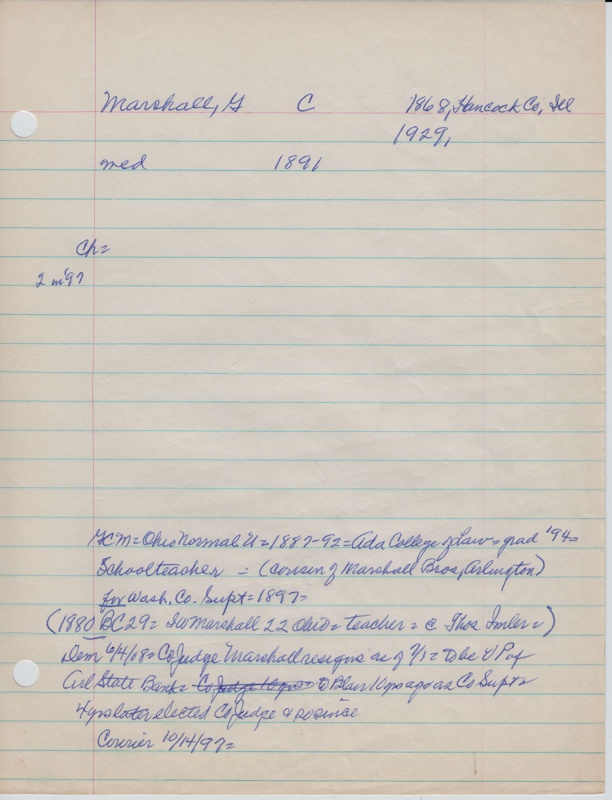 Marshall, G C 1868, Hancock Co, Ill
1929,
med 1891
Ch=
2 m '97
GCM = Ohio Normal U = 1887-92 = Ada College of Law = grad '94 =
Schoolteacher = (cousin of Marshall Bros, Arlington)
for Wash. Co. Supt = 1897 =
(1880 BC 29 = Marshall 22 Ohio = teacher = c Thos Imler =)
Dem 6/4/08 = Co Judge Marshall resigns as of 7/1 = to be VP of
Arl State Bank = Co Judge 10 yrs = to Blair 14 yrs ago as Co Supt =
4 yrs later elected Co Judge & so since
Courier 10/14/97 =